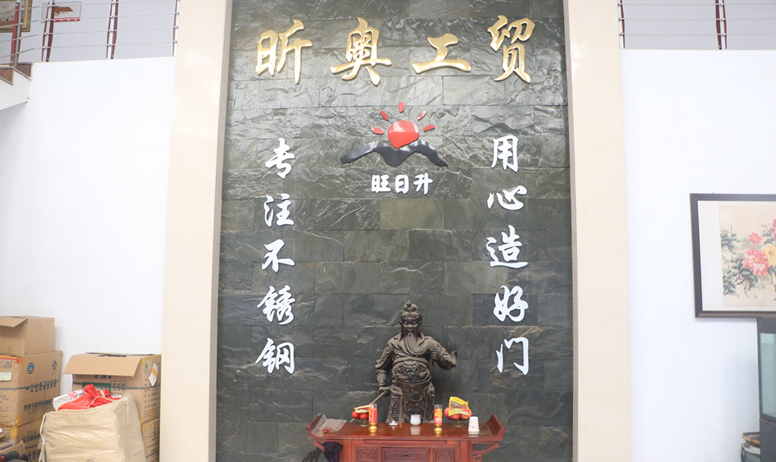 昕奥工贸
旺日升
专注不锈钢
用心造好门